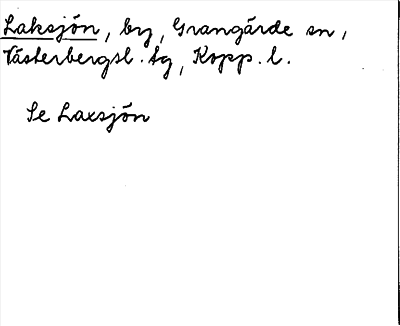 Laksjön, by, Grangärde sn,
Västerbergsl. tg, Kopp. l.
Se Laxsjön